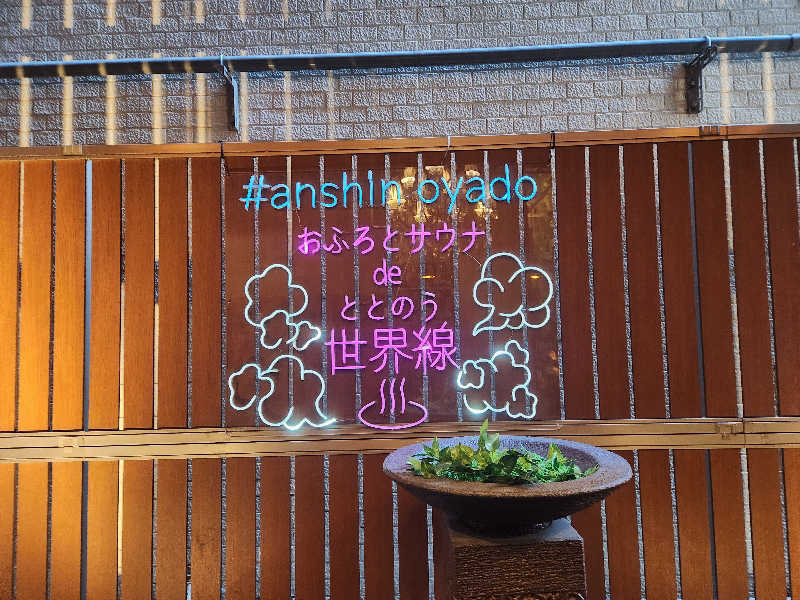 #anshin oyado
おふろとサウナ
de
ととのう
世界線